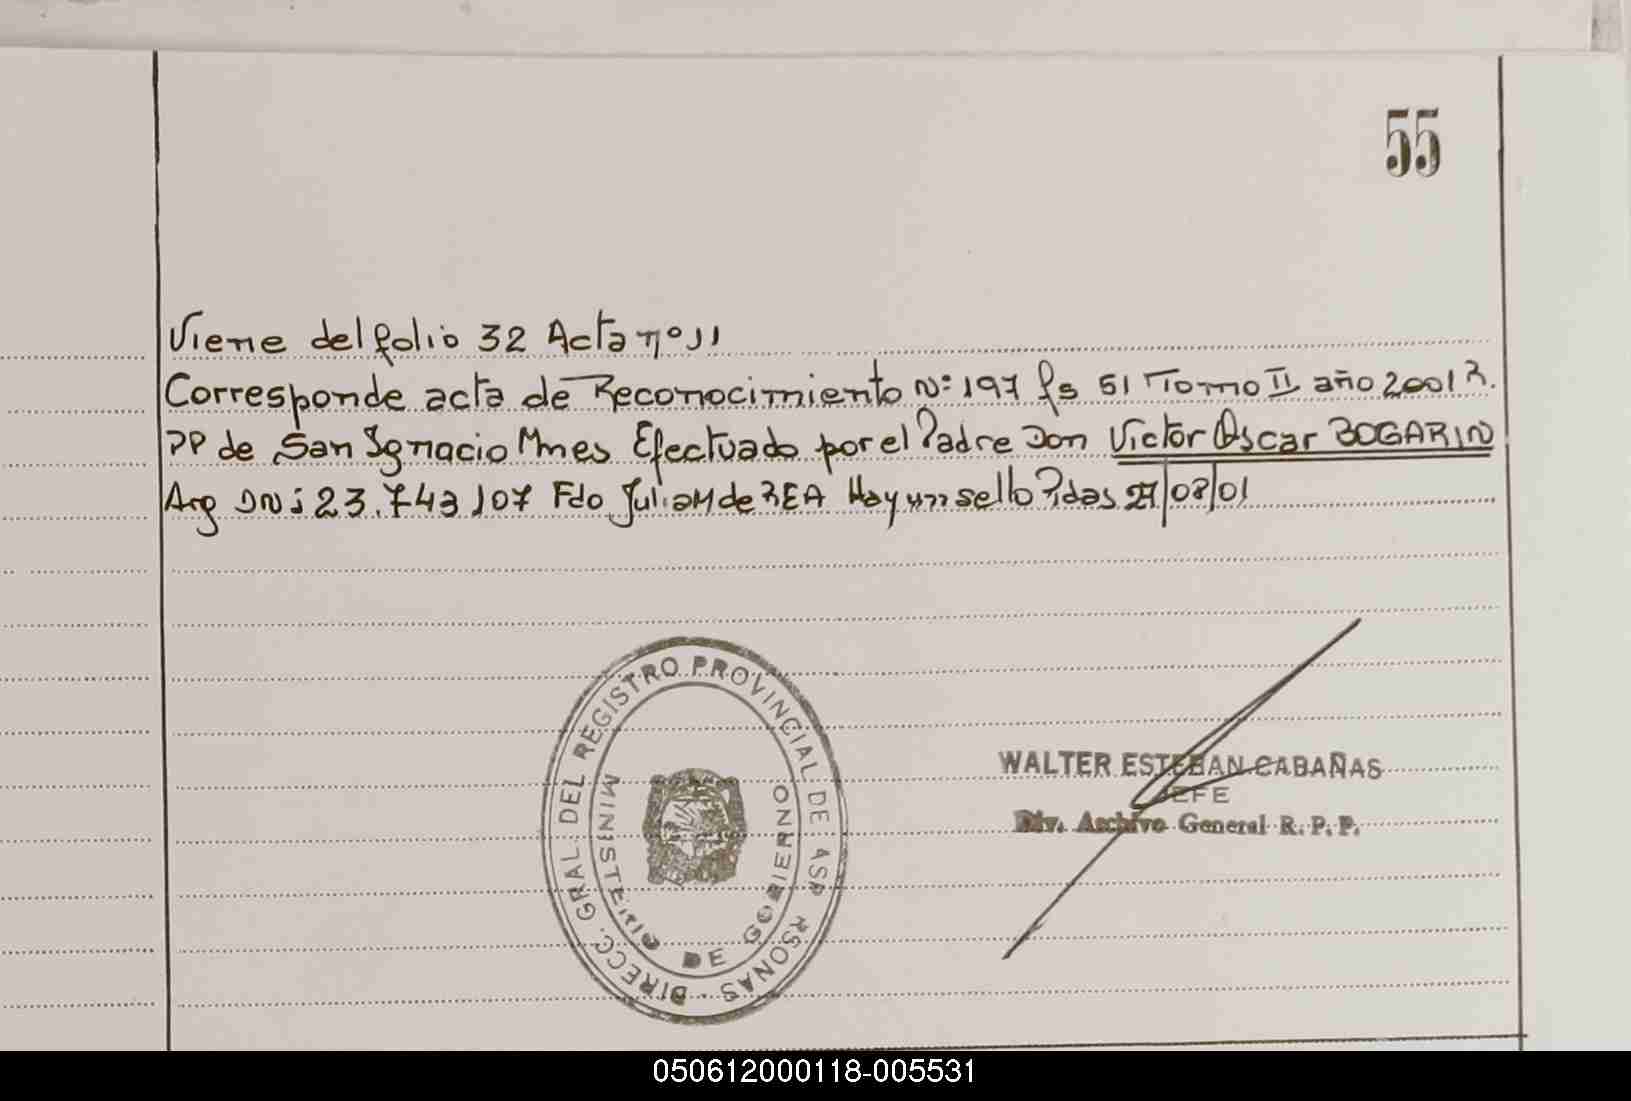 55
Viene del folio 32 Acta nº 11
Corresponde acta de Reconocimiento Nº 197 fs 51 Tomo II año 2001 R.
PP de San Ignacio Mnes Efectuado por el Padre Don Victor Oscar BOGARIN
Arg DNI 23.743107 Fdo Julia M de REA Hay un sello Pdas 27/08/01
DIRECC. GRAL. DEL REGISTRO PROVINCIAL DE
MINISTERIO DE GOBIERNO
WALTER ESTEBAN CABAÑAS
JEFE
Div. Archivo General R. P. P.
050612000118-005531